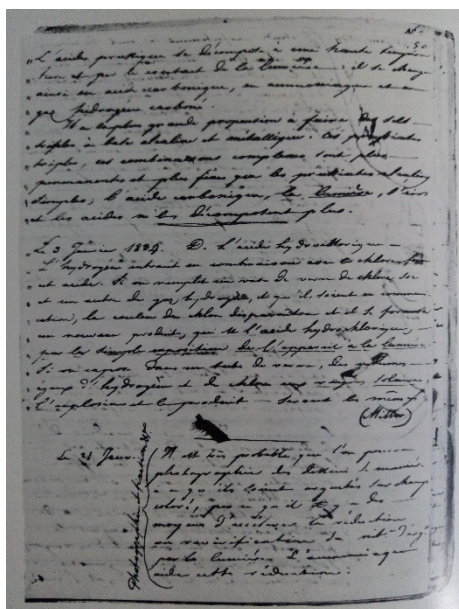 50
L'acide prussique se décompose à une haute tempéra-
ture et par le contact de la lumière: il se change
ainsi en acide carbonique, en ammoniaque et en
gaz hydrogène carboné.
Il a la plus grande propension à faire des sels
triples à base alcaline et métallique. Ces prussiates
triples, ces combinaisons complexes sont plus
permanentes et plus fixes que les prussiates alcalins
simples; l'acide carbonique, la lumière, l'air
et les acides ne les décomposent plus.
Le 3 Janvier 1834. D. L'acide hydrochlorique
L'hydrogène entrant en combinaison avec le chlore,
cet acide. Si on remplit un vase de verre de chlore sec
et un autre de gaz hydrogène, et qu'ils soient en communi-
cation, la couleur du chlore disparaîtra et il se formera
un nouveau produit, qui est l'acide hydrochlorique,
par la simple exposition de l'appareil à la lumière.
Si on expose dans un tube de verre, des volumes
égaux d'hydrogène et de chlore aux rayons solaires,
l'explosion et le produit seront les mêmes
Le 21 Janv.
Il est très probable que l'on pourra
photographier des dessins
colorés, parce qu'il y a des
moyens d'accélérer la réduction
ou revivification du nit. d'arg.
par la lumière. L'ammoniaque
aide cette réduction.